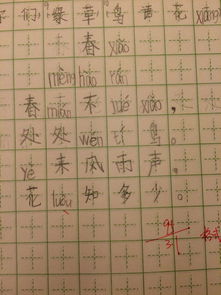 们,绿草鸟黄花
春 xiǎo
mèng hào rán
春 mián 不 jué xiǎo，
处处 wén tí 鸟。
yè 来风雨声
花 luò 知多少。
格式